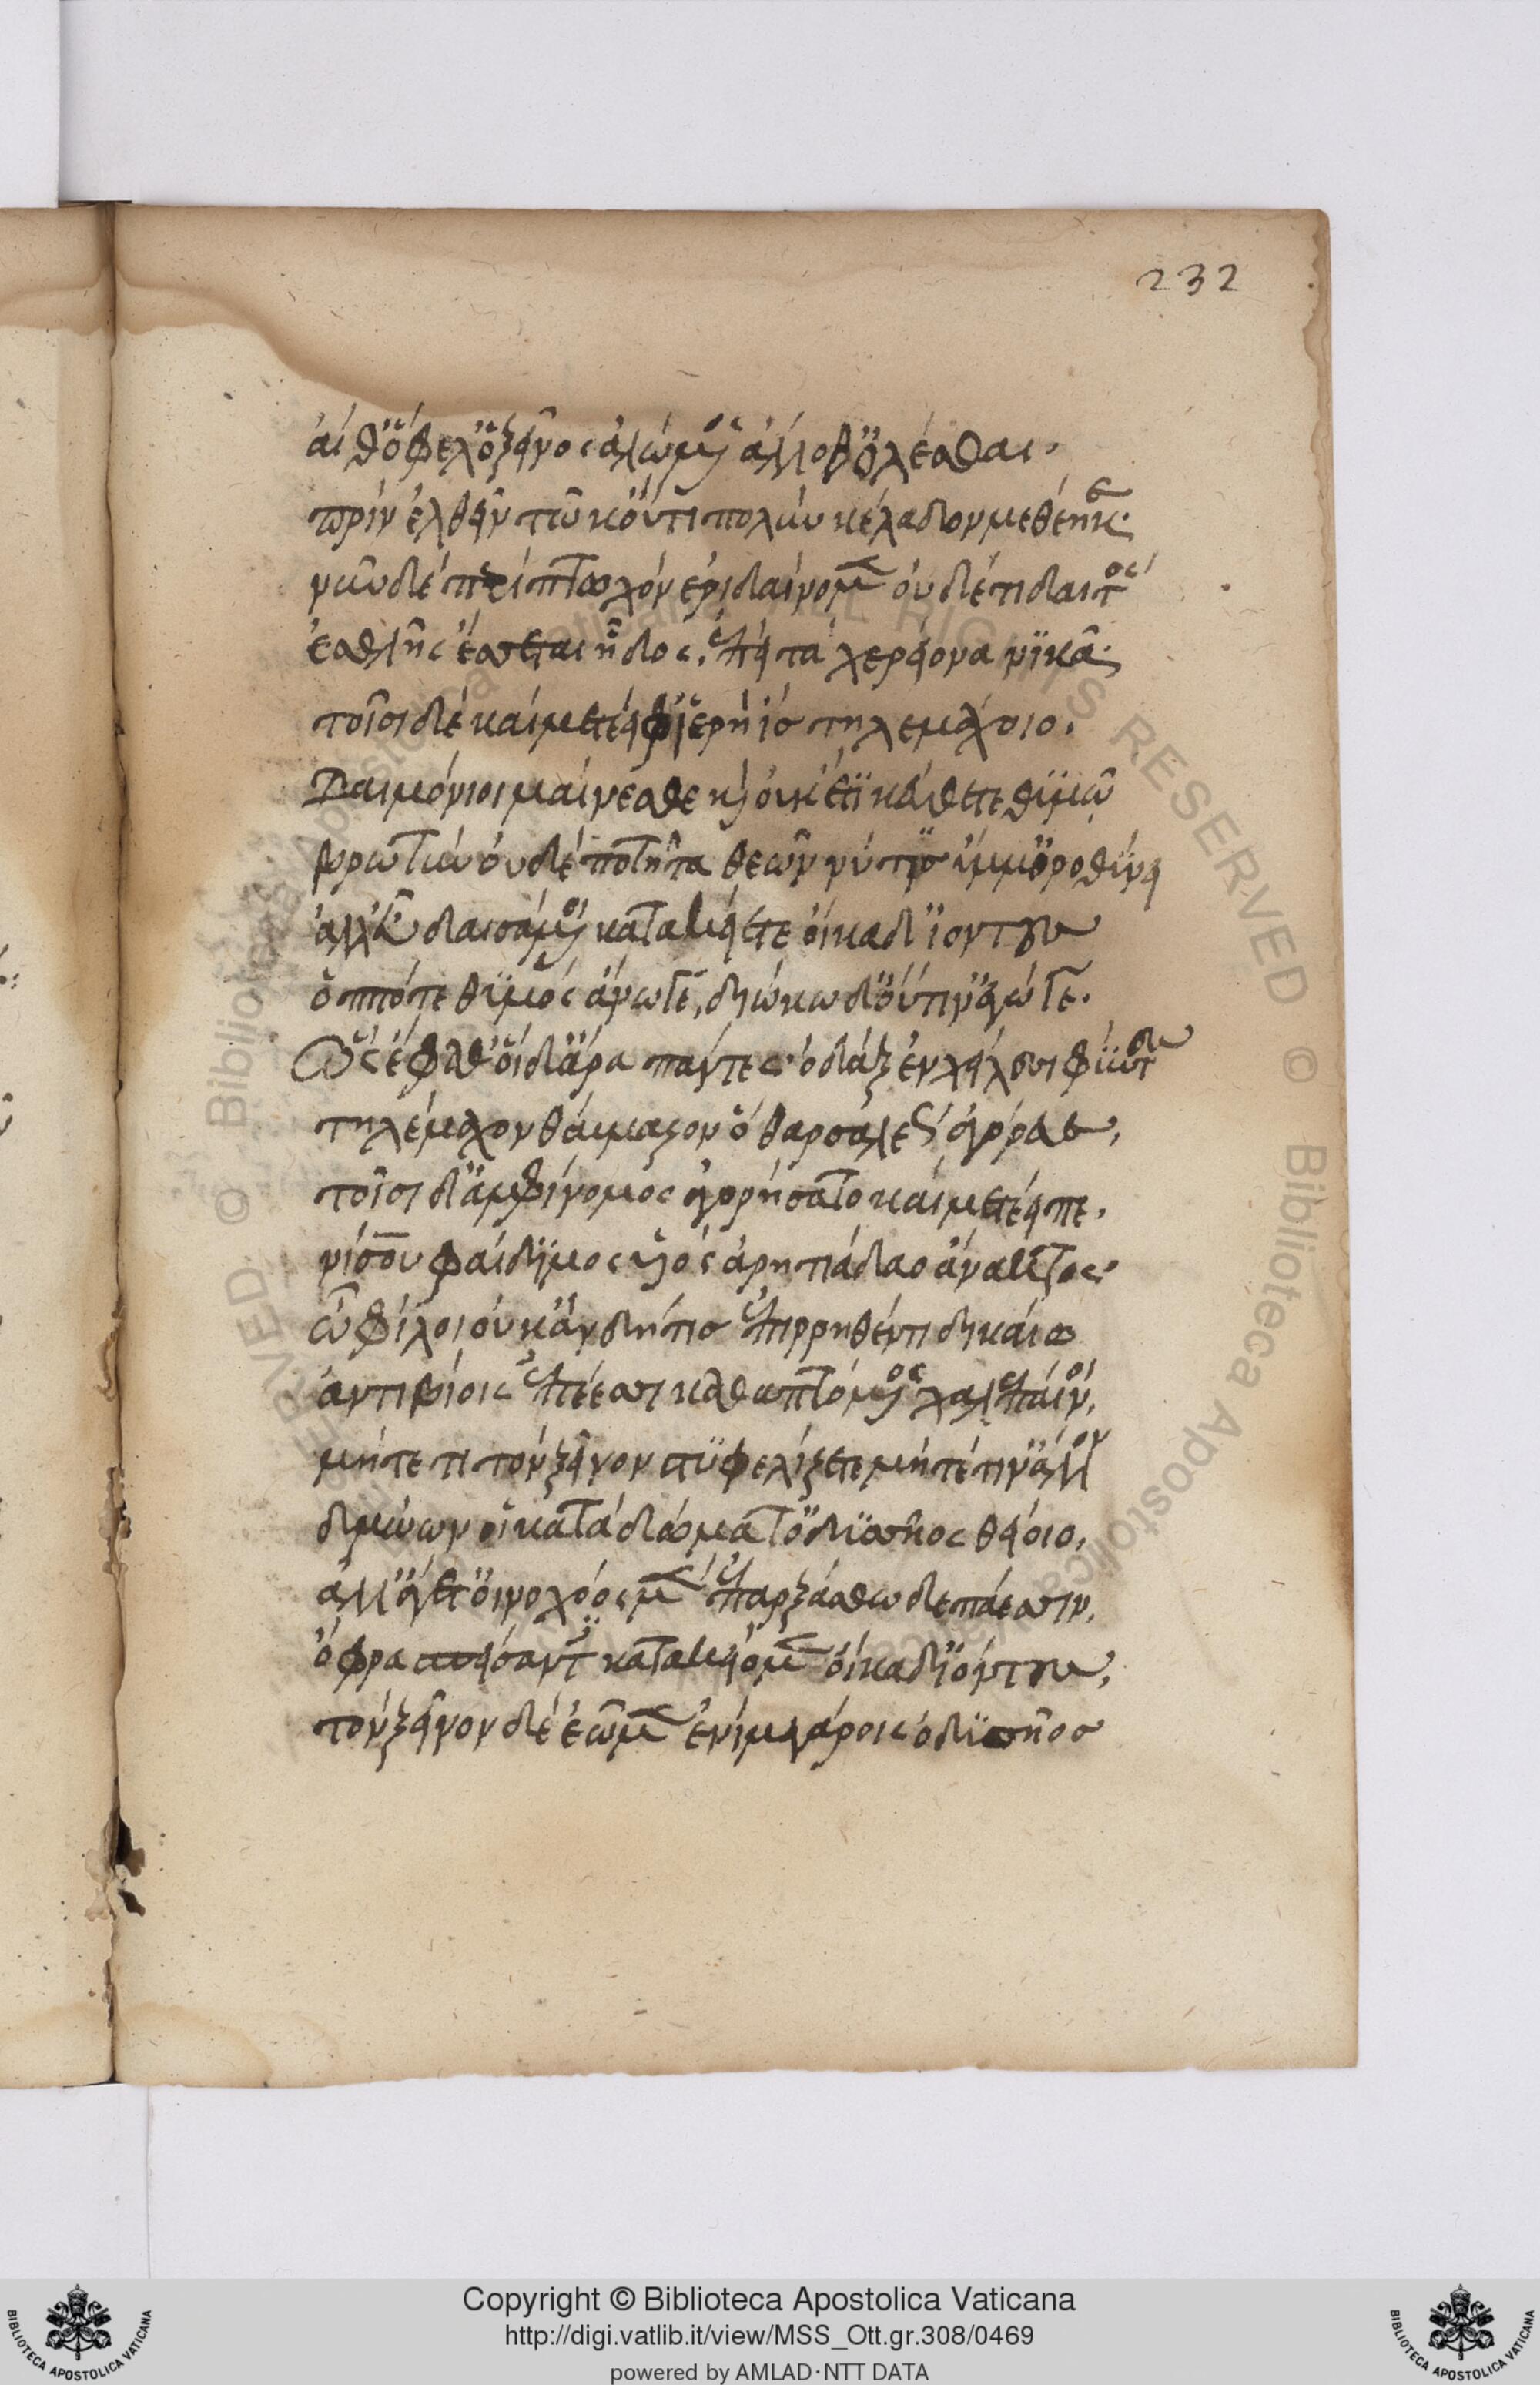 232
αἴθ' ὤφελ' ὁ ξεῖνος ἀλώμενος ἄλλοθ' ὀλέσθαι.
πρὶν ἐλθεῖν τῶ κ' οὔτι πολὺν κέλαδον μεθέηκε.
νῦν δὲ περὶ πτωχῶν ἐριδαίνομεν οὐδέ τι δαιτὸς
ἐσθλῆς ἔσσεται ἦδος, ἐπεὶ τὰ χερείονα νικᾶ.
τοῖσι δὲ καὶ μετέειφ' ἱερὴ ἲς τηλεμάχοιο.
Δαιμόνιοι μαίνεσθε καὶ οὐκέτι κεύθετε θυμῶ
βρωτὺν οὐδὲ ποτῆτα θεῶν νύ τις ὔμμ' ὀροθύνει
ἀλλ' εὖ δαισάμενοι κατακείετε οἴκαδ' ἰόντες
ὁππότε θυμὸς ἄνωγε, διώκω δ' οὔτιν' ἔγωγε.
Ὣς ἔφαθ' οἱ δ' ἄρα πάντες ὀδὰξ ἐν χείλεσι φύντες
τηλέμαχον θαύμαζον ὃ θαρσαλέως ἀγόρευε,
τοῖσι δ' ἀμφίνομος ἀγορήσατο καὶ μετέειπε.
νίσου φαίδιμος υἱὸς ἀρητιάδαο ἄνακτος.
ὦ φίλοι οὐκ ἂν δή τις ἐπὶ ῥηθέντι δικαίω
ἀντιβίοις ἐπέεσσι καθαπτόμενος χαλεπαίνοι,
μήτε τι τὸν ξεῖνον στυφελίζετε μήτέ τιν' ἄλλον
δμώων οἳ κατὰ δώματ' ὀδυσσῆος θείοιο,
ἀλλ' ἄγετ' οἰνοχόος μὲν ἐπαρξάσθω δεπάεσσιν,
ὄφρα σπείσαντες κατακείομεν οἴκαδ' ἰόντες,
τὸν ξεῖνον δὲ ἐῶμεν ἐνὶ μεγάροις ὀδυσσῆος
Copyright © Biblioteca Apostolica Vaticana
http://digi.vatlib.it/view/MSS_Ott.gr.308/0469
powered by AMLAD·NTT DATA